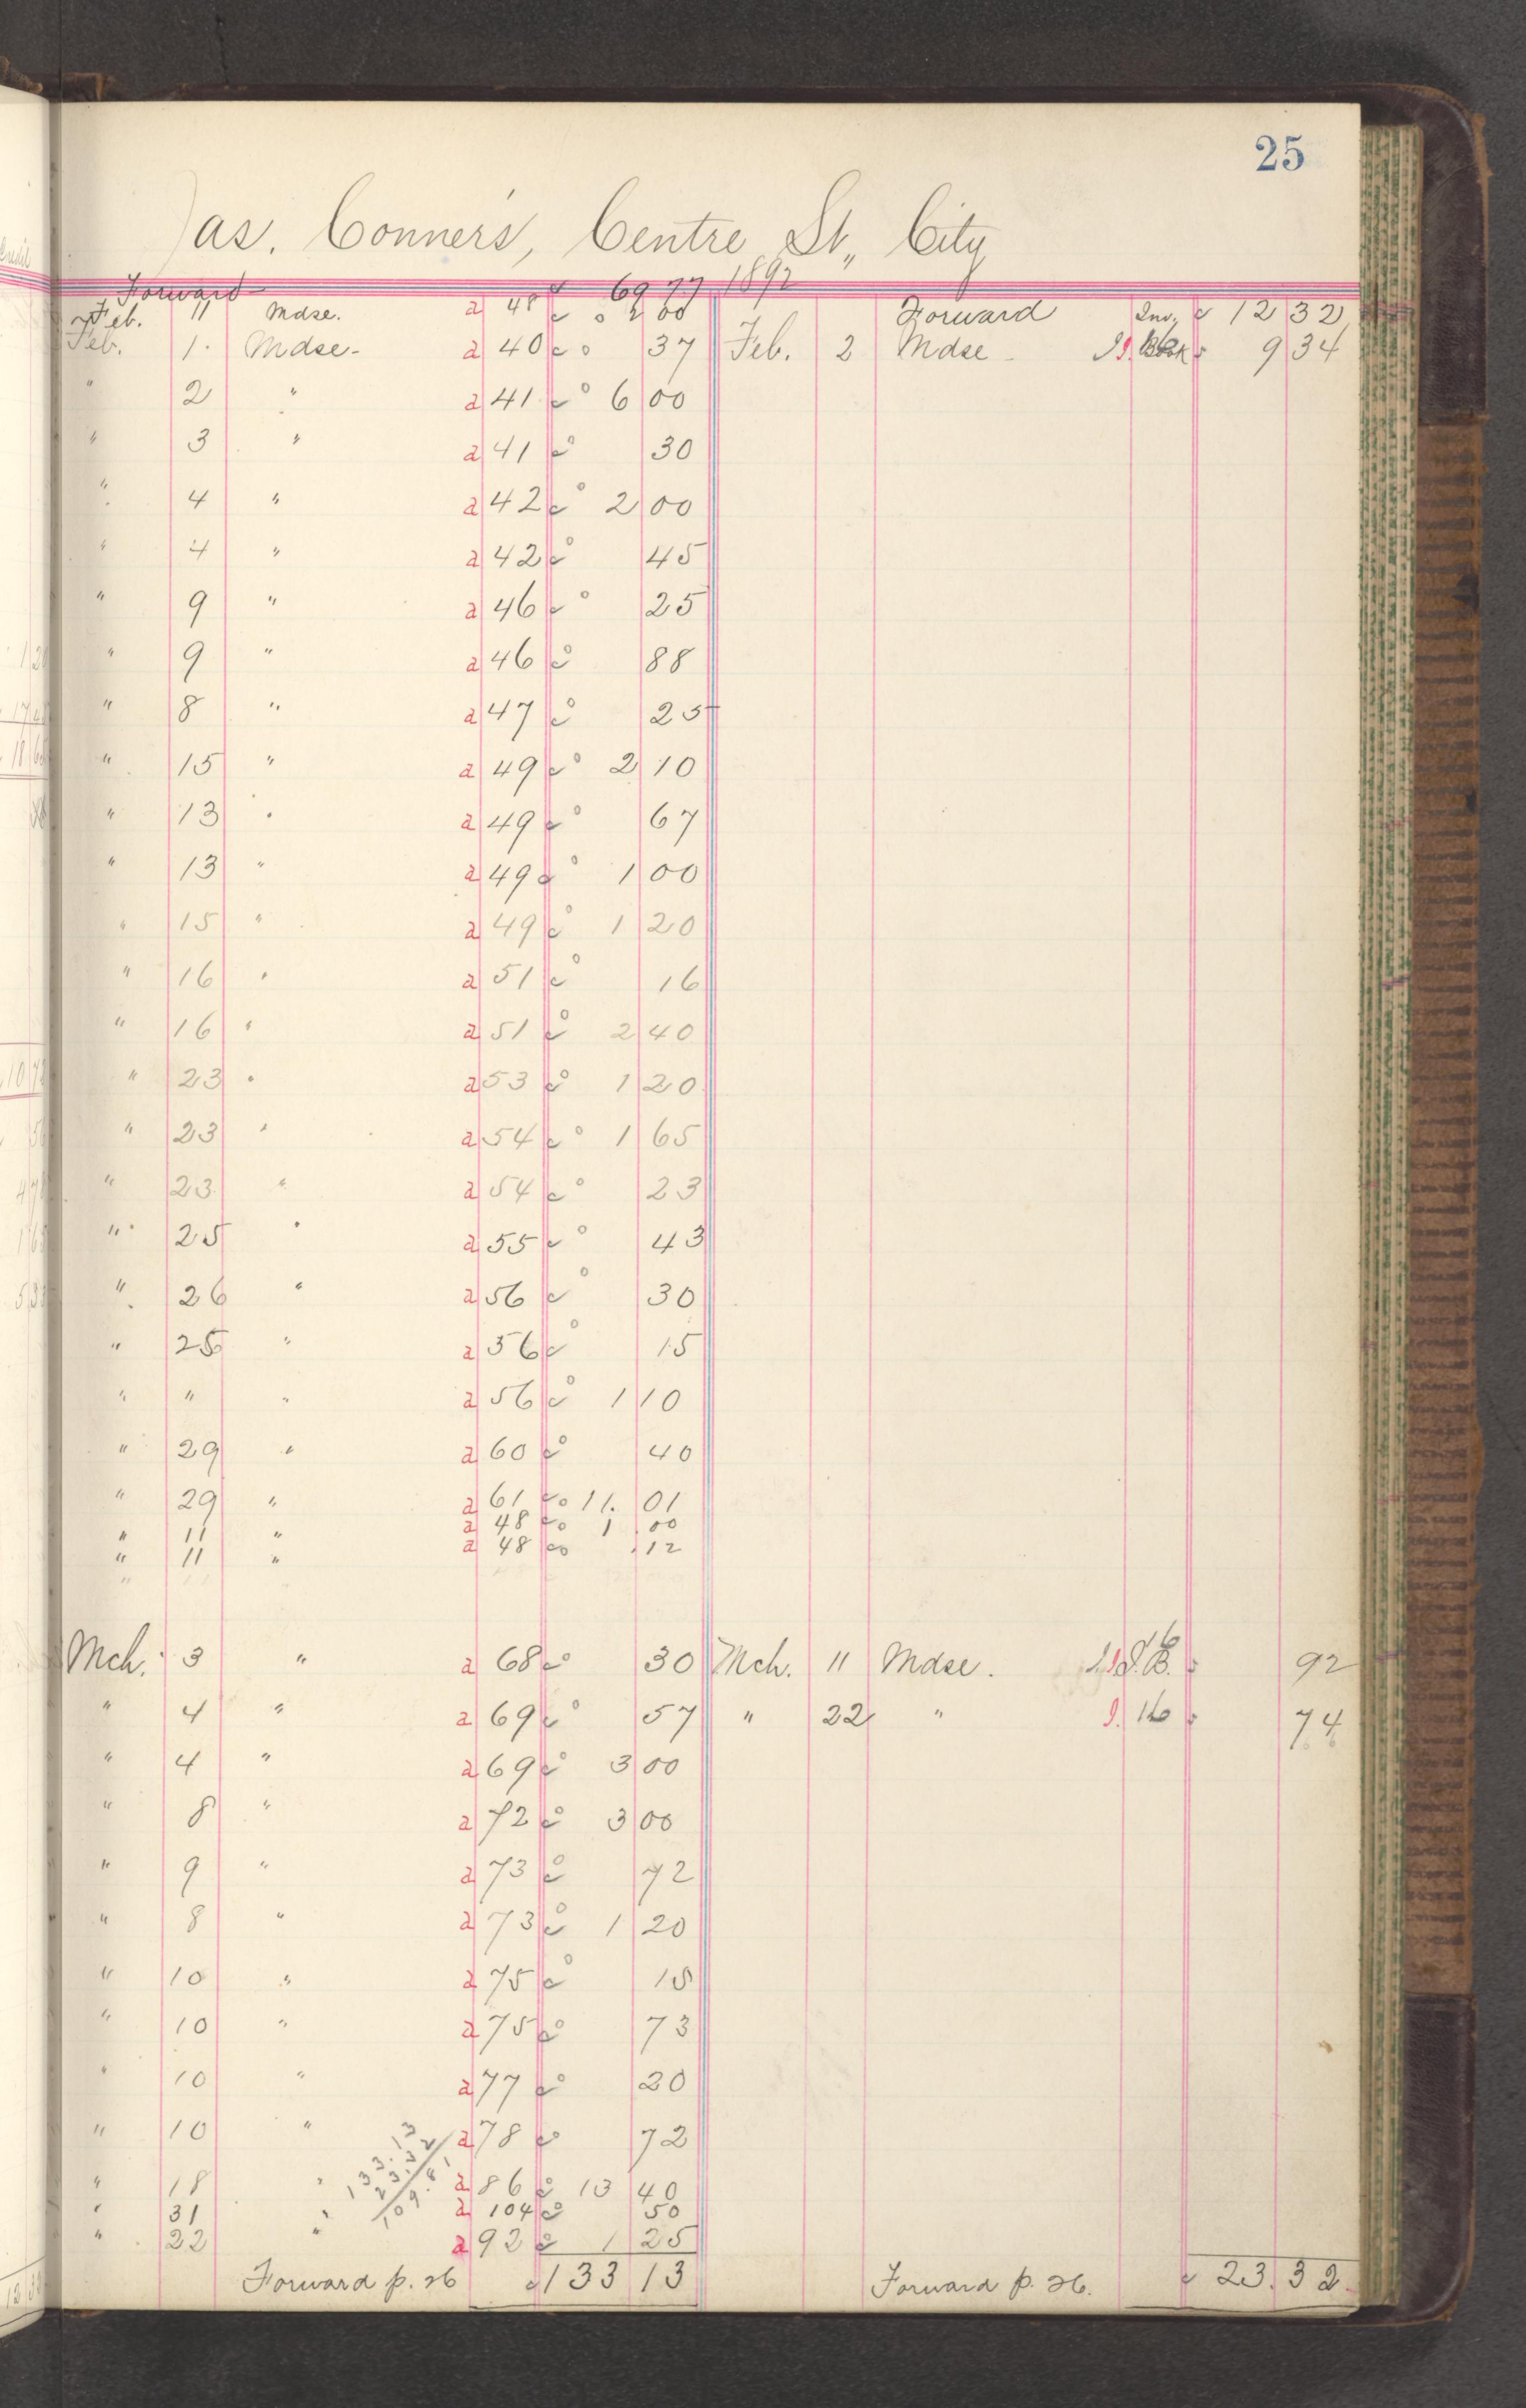 25
Jas. Conners, Centre St., City
Forward 69 77 1892
Feb. 11 Mdse. a 48 2 00 Forward Inv. 12 32
Feb. 1 Mdse. a 40 37 Feb. 2 Mdse Book 9 34
" 2 " a 41 6 00
" 3 " a 41 30
" 4 " a 42 2 00
" 4 " a 42 45
" 9 " a 46 25
" 9 " a 46 88
" 8 " a 47 25
" 15 " a 49 2 10
" 13 " a 49 67
" 13 " a 49 1 00
" 15 " a 49 1 20
" 16 " a 51 16
" 16 " a 51 2 40
" 23 " a 53 1 20
" 23 " a 54 1 65
" 23 " a 54 23
" 25 " a 55 43
" 26 " a 56 30
" 25 " a 56 15
" " " a 56 1 10
" 29 " a 60 40
" 29 " a 61 11. 01
" 11 " a 48 1 00
" 11 " a 48 .12
Mch. 3 " a 68 30 Mch. 11 Mdse. I.B. 16 92
" 4 " a 69 57 " 22 " I. 16 74
" 4 " a 69 3 00
" 8 " a 72 3 00
" 9 " a 73 72
" 8 " a 73 1 20
" 10 " a 75 15
" 10 " a 75 73
" 10 " a 77 20
" 10 " a 78 72
133.13
23.32
109.81
" 18 " a 86 13 40
" 31 " a 104 50
" 22 " a 92 1 25
Forward p. 26 133 13 Forward p. 26. 23.32